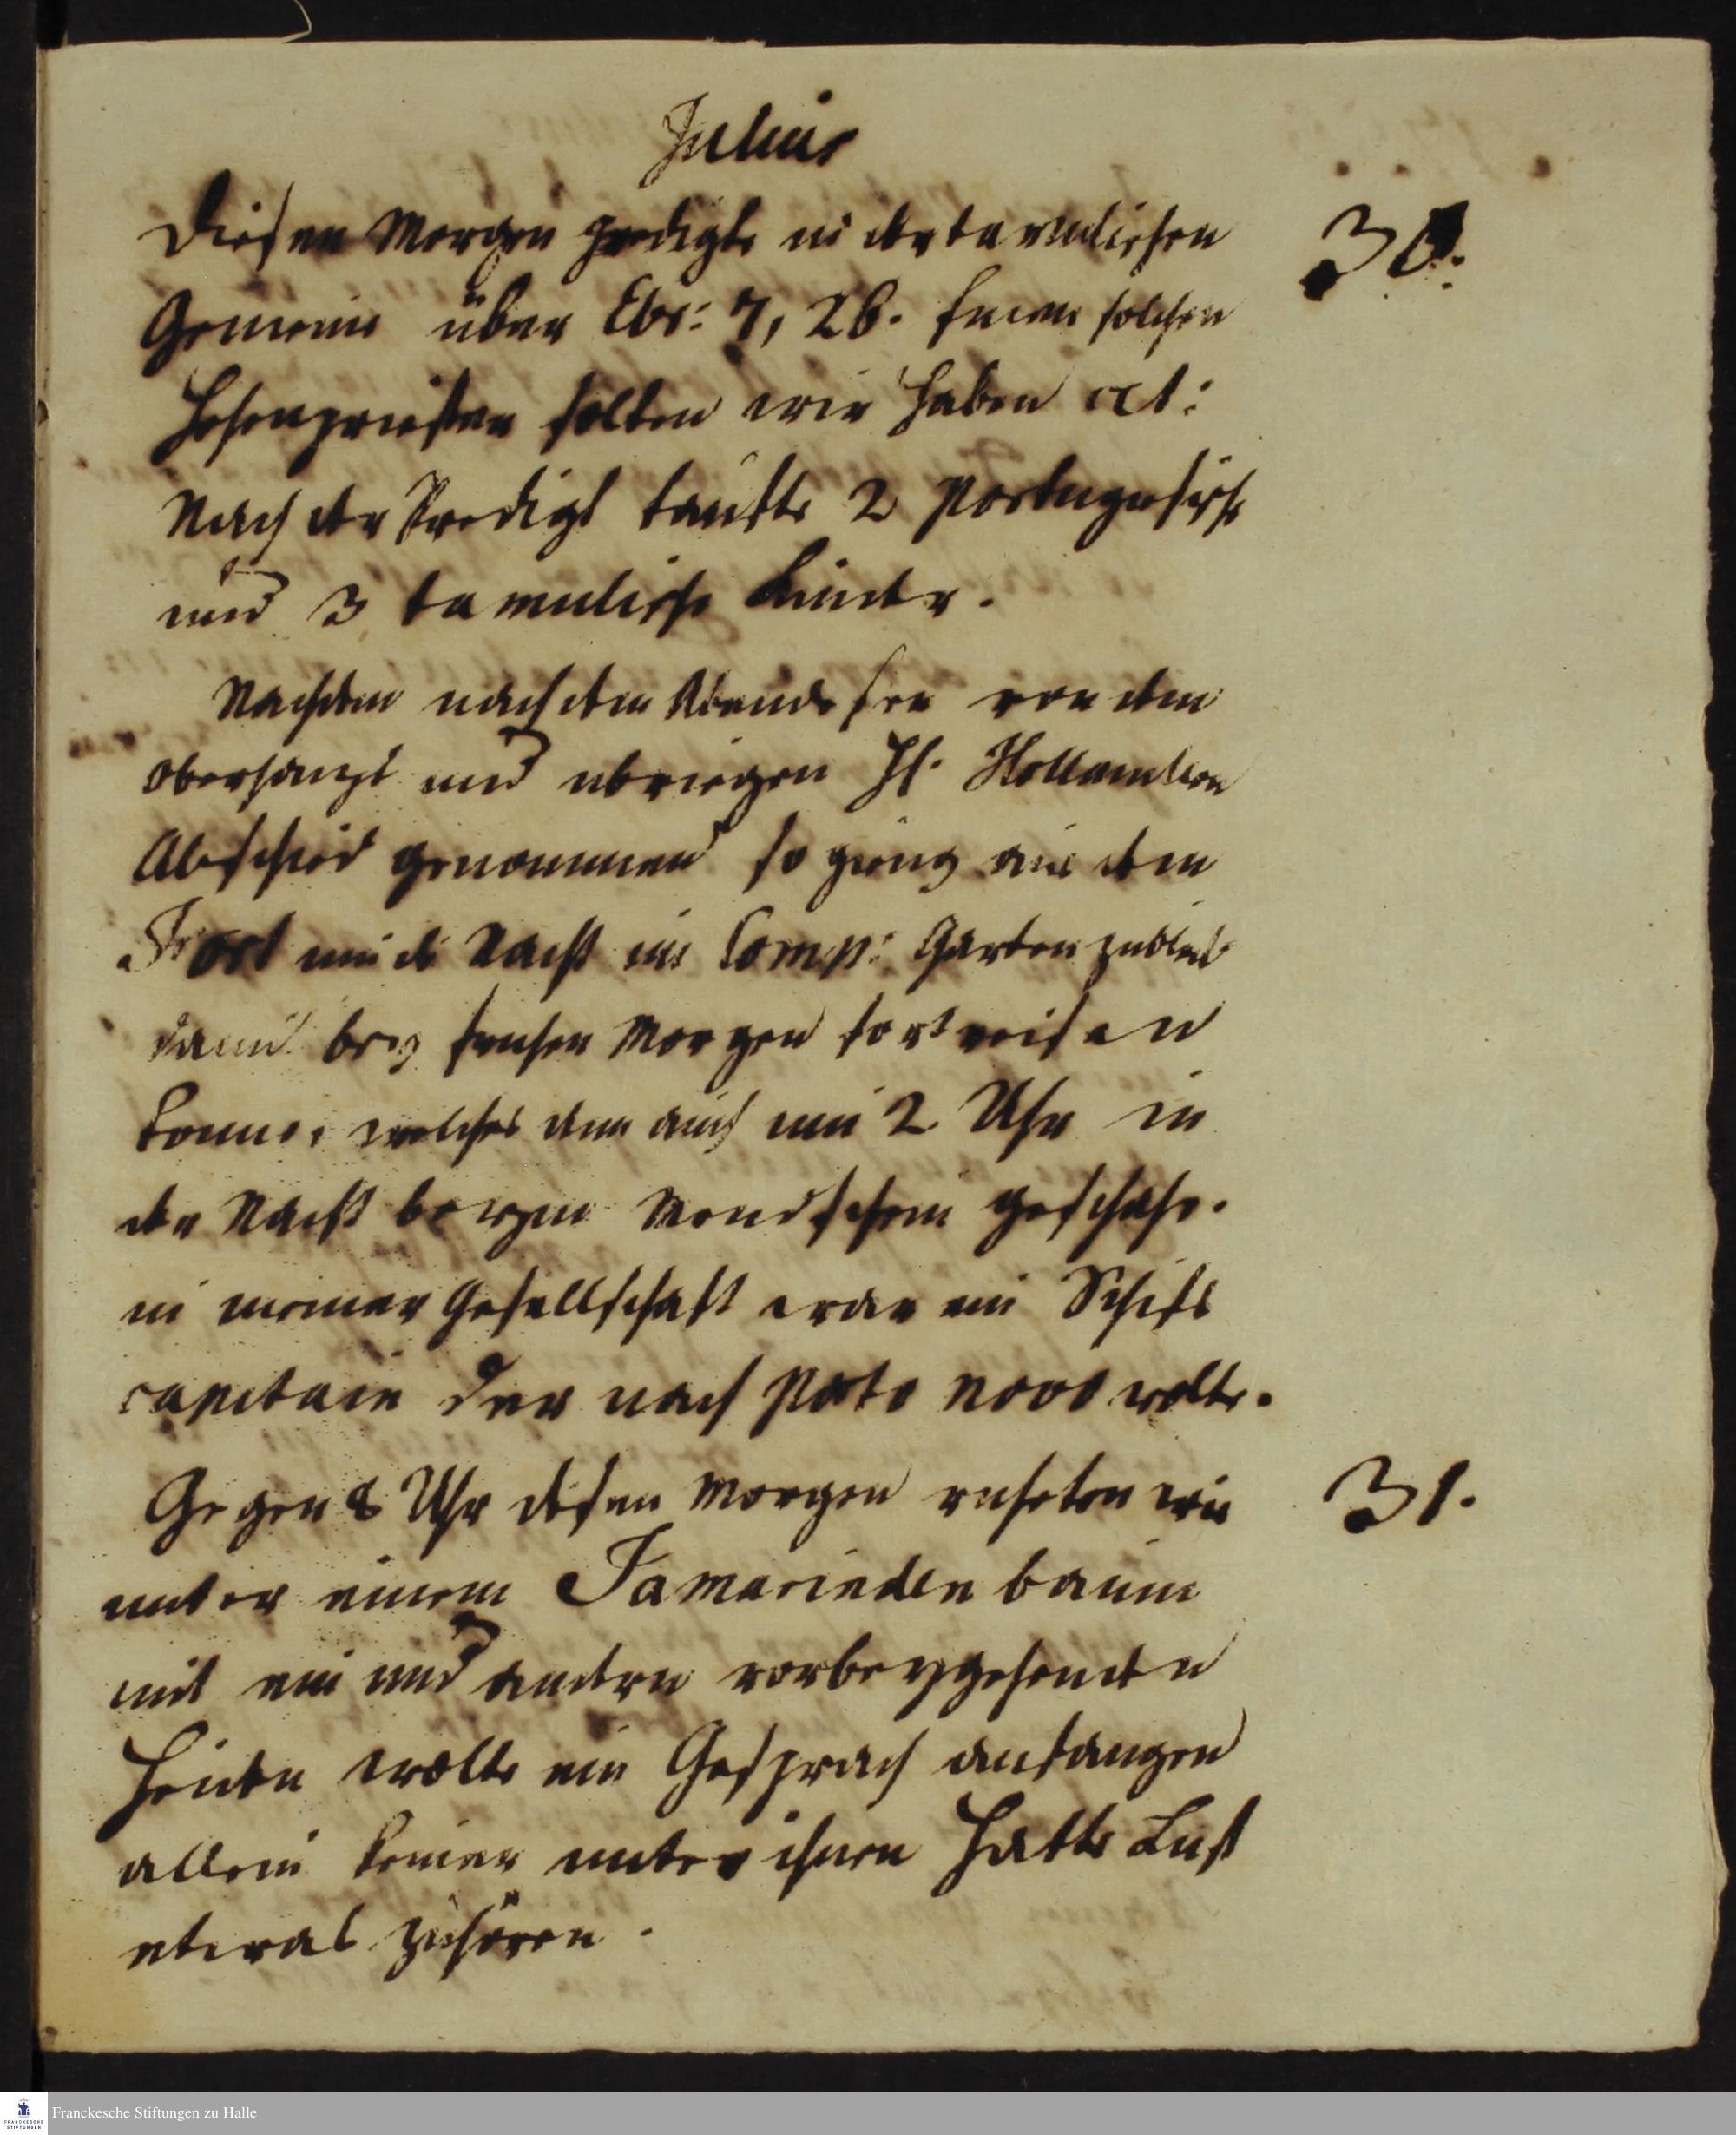 Julius
Diesen Morgen predigte in der tamulischen
30.
Gemeine über Ebr: 7, 26. Einen solchen
Hohenpriester solten wir haben ect:
Nach der Predigt taufte 2 Portugisische
und 3 tamulische Kinder.
Nachdem nach dem Abendessen von dem
Oberhaupt und ubriegen HE. Hollandern
Abschied genommen so gieng aus dem
Fort um die Nacht im Comp: Garten zu
damit bey fruhen Morgen fortreisen
konne, welches denn auch um 2 Uhr in
der Nacht beyym Mondschein geschahe.
in meiner Gesellschaft war ein Schifs
capitain der nach Porto novo wolte.
Gegen 8 Uhr diesen Morgen ruheten wir
31.
unter einem Tamarinden baum
mit ein und andern vorbeygehenden
Heiden wolte ein Gesprach anfangen
allein keiner unter ihnen hatte Lust
etwas zuhören.
Franckesche Stiftungen zu Halle
FRANCKESCHE
STIFTUNGEN